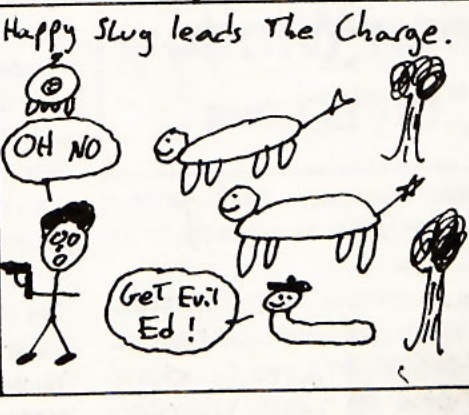 Happy Slug leads The Charge.
OH NO
GeT Evil
Ed !